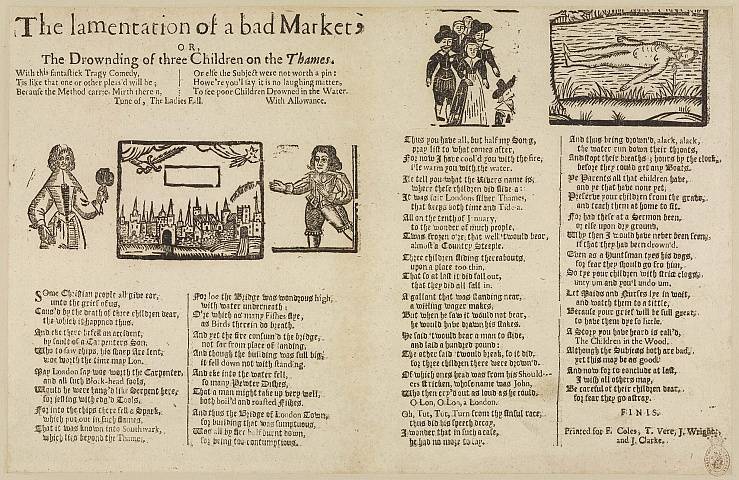 The lamentation of a bad Market:
OR,
The Drownding of three Children on the Thames.
With this fantastick Tragy Comedy,
Tis like that one or other pleas'd will be;
Because the Method carries Mirth therein,
Or else the Subject were not worth a pin:
Howe're you'l say it is no laughing matter,
To see poor Children Drowned in the Water.
Tune of, The Ladies Fall.
With Allowance.
SOme Christian people all give ear,
unto the grief of us,
Caus'd by the death of three children dear,
the which it hapned thus.
And eke there befel an accident,
by fault of a Carpenters Son,
Who to saw chips, his sharp Ax lent,
woe worth the time may Lon.
May London say woe worth the Carpenter,
and all such Block-head fools,
Would he were hang'd like Serpent here,
for jesting with edg'd Tools,
For into the chips there fell a Spark,
which put out in such flames,
That it was known into Southwark,
which lies beyond the Thames.
For loe the Bridge was wondrous high,
with water underneath:
O're which as many Fishes flye,
as Birds therein do breath.
And yet the fire consum'd the bridge,
not far from place of landing,
And though the building was full big,
it fell down not with standing.
And eke into the water fell,
so many Pewter Dishes,
That a man might take up very well,
both boil'd and roasted Fishes.
And thus the Bridge of London Town,
for building that was sumptuous,
Was all by fire half burnt down,
for being too contumptious.
Thus you have all, but half my Song,
pray list to what comes after,
For now I have cool'd you with the fire,
I'le warm you with the water.
Ile tell you what the Rivers name is,
where these children did slide-a:
It was fair Londons silver Thames,
that keeps both time and Tide-a.
All on the tenth of January,
to the wonder of much people,
Twas frozen o're, that well 'twould bear,
almost a Country Steeple.
Three children sliding thereabouts,
upon a place too thin,
That so at last it did fall out,
that they did all fall in.
A gallant that was standing near,
a wilfling wager makes,
But when he saw it would not bear,
he would have drawn his stakes.
He said 'twould bear a man to slide,
and laid a hundred pound:
The other said 'twould break, so it did,
for three children there were drown'd.
Of which ones head was from his Should-
ers stricken, whose name was John,
Who then cry'd out as loud as he could,
O-Lon, O-Lon, a London.
Oh, Tut, Tut, Turn from thy sinful race,
thus did his speech decay,
I wonder that in such a case,
he had no more to say.
And thus being drown'd, alack, alack,
the water run down their throats,
And stopt their breaths 3 hours by the clock,
before they could get any Boats.
Ye Parents all that children have,
and ye that have none yet,
Preserve your children from the grave,
and teach them at home to sit.
For had these at a Sermon been,
or else upon dry ground,
Why then I would have never been seen,
if that they had been drown'd.
Even as a Huntsman tyes his dogs,
for fear they should go fro him,
So tye your children with stric clogs,
unty um and you'l undo um.
Let Maids and Nurses lye in wait,
and watch them to a tittle,
Because your grief will be full great,
to have them dye so little.
A Story you have heard is call'd,
The Children in the Wood,
Although the Subjects both are bad,
yet this may be as good.
And now for to conclude at last,
I wish all others may,
Be careful of their children dear,
for fear they go astray.
FINIS.
Printed for F. Coles, T. Vere, J. Wright,
and J. Clarke.